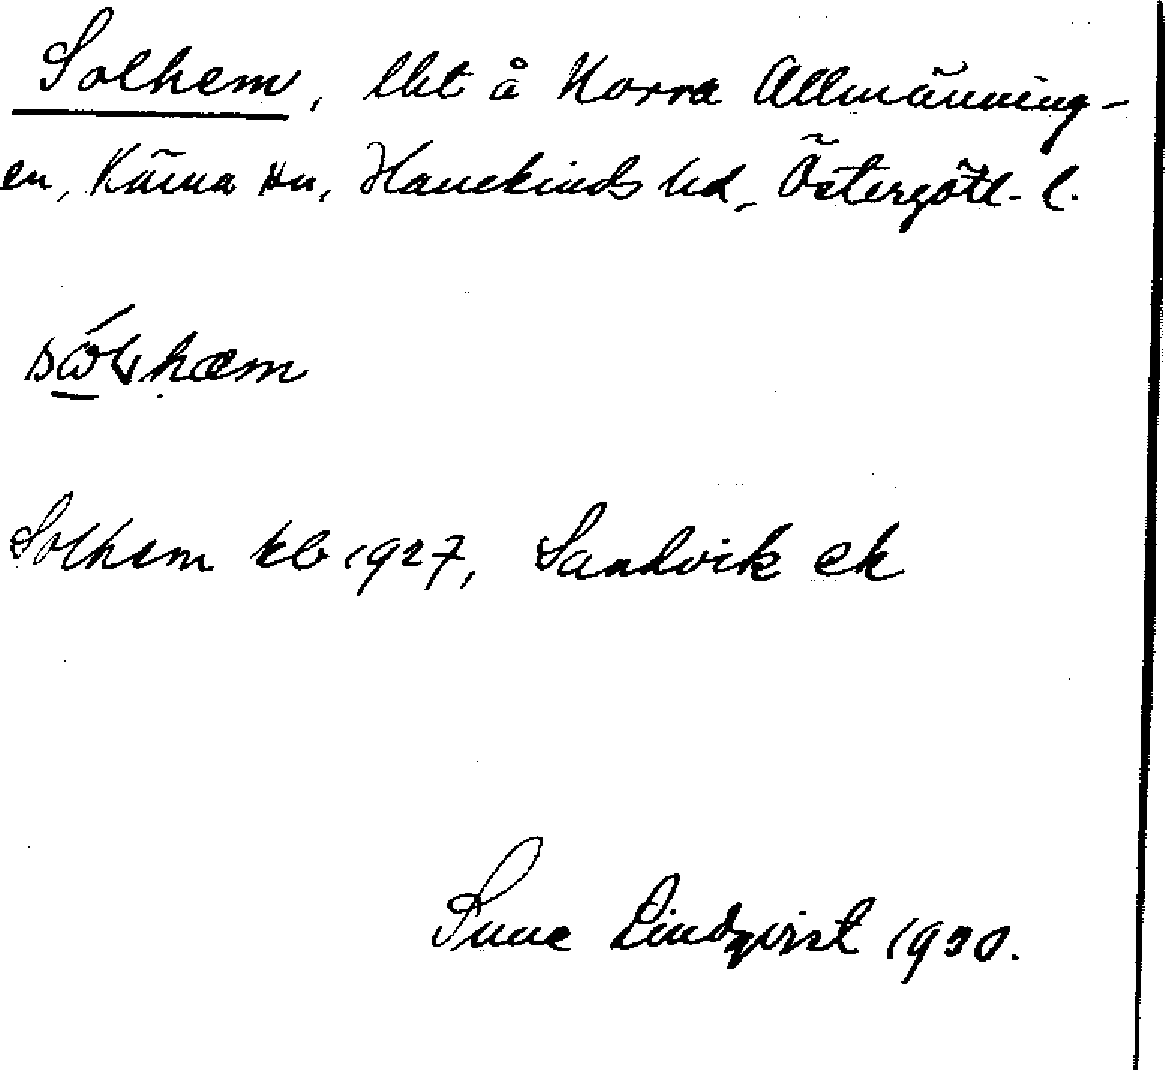 Solhem, lht å Norra Allmänning-
en, Kärna sn, Hanekinds hd, Östergötl. l.
hæm
Solhem kb 1927, Sandvik ek
Sune Lindqvist 1930.